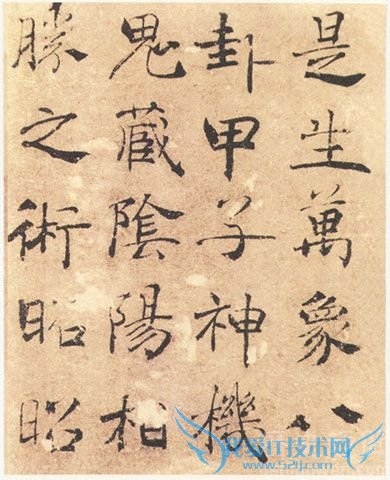 是生萬象八
卦甲子神機
鬼藏陰陽相
勝之術昭昭
我爱IT技术网
www.52ij.com